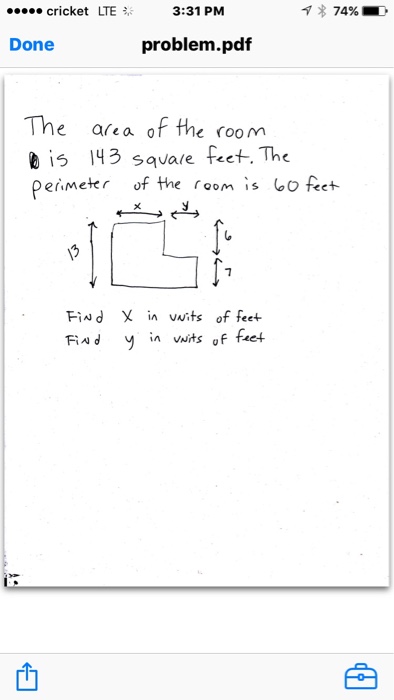 cricket LTE 3:31 PM 74%
Done problem.pdf
The area of the room
is 143 square feet. The
perimeter of the room is 60 feet
x y
13
6
7
Find X in units of feet
Find y in units of feet